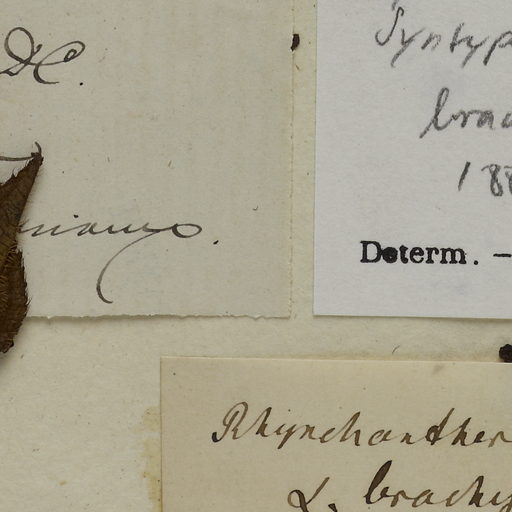 DC.
Syntyp
brac
188
Determ. —
Rhynchanther
α. brachy